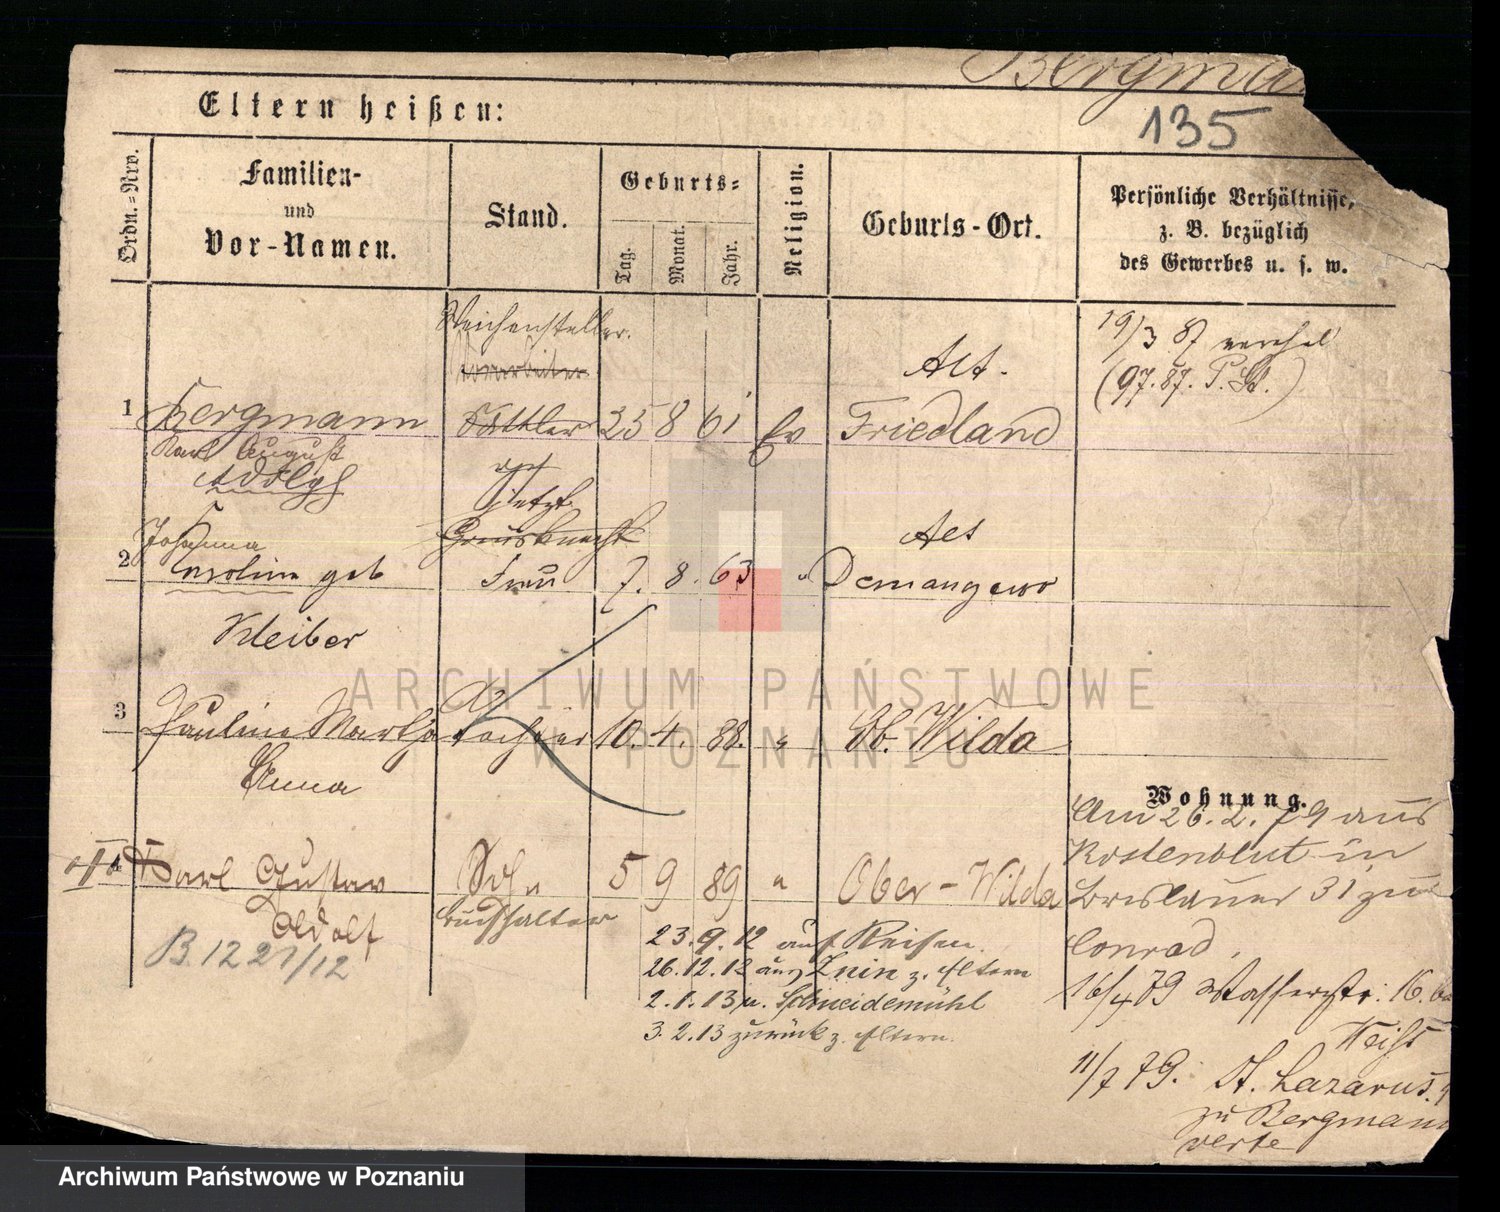 Bergma
135
Eltern heißen:
Ordn.-Nro.
Familien-
und
Vor-Namen.
Stand.
Geburts-
Tag.
Monat.
Jahr.
Religion.
Geburts-Ort.
Persönliche Verhältnisse,
z. B. bezüglich
des Gewerbes u. s. w.
Weichensteller.
19/3 87 verehel
Alt.
(97.87. P. St.)
1 Bergmann Sattler 25 8 61 Ev Friedland
Karl August
Adolph
jetzt
Johanna
2 Karoline geb Frau 7. 8. 63 " Demangewo
Kleiber
3 Pauline Martha Tochter 10. 4. 88. " Ob. Wilda
Anna
Wohnung.
Am 26. 2. 79 aus
Kostenblut in
4 Karl Gustav Sohn 5 9 89 " Ober-Wilda
Breslauer 31 zu
Adolf
Buchhalter
23.9.12 auf Reisen.
Conrad.
B. 1221/12
26.12.12 aus Znin z. Eltern
16/4 79 Wasserstr: 16.
2.1.13 n. Schneidemühl
3.2.13 zurück z. Eltern.
11/7 79. St. Lazarus.
zu Bergmann
ARCHIWUM PAŃSTWOWE
W POZNANIU
Archiwum Państwowe w Poznaniu